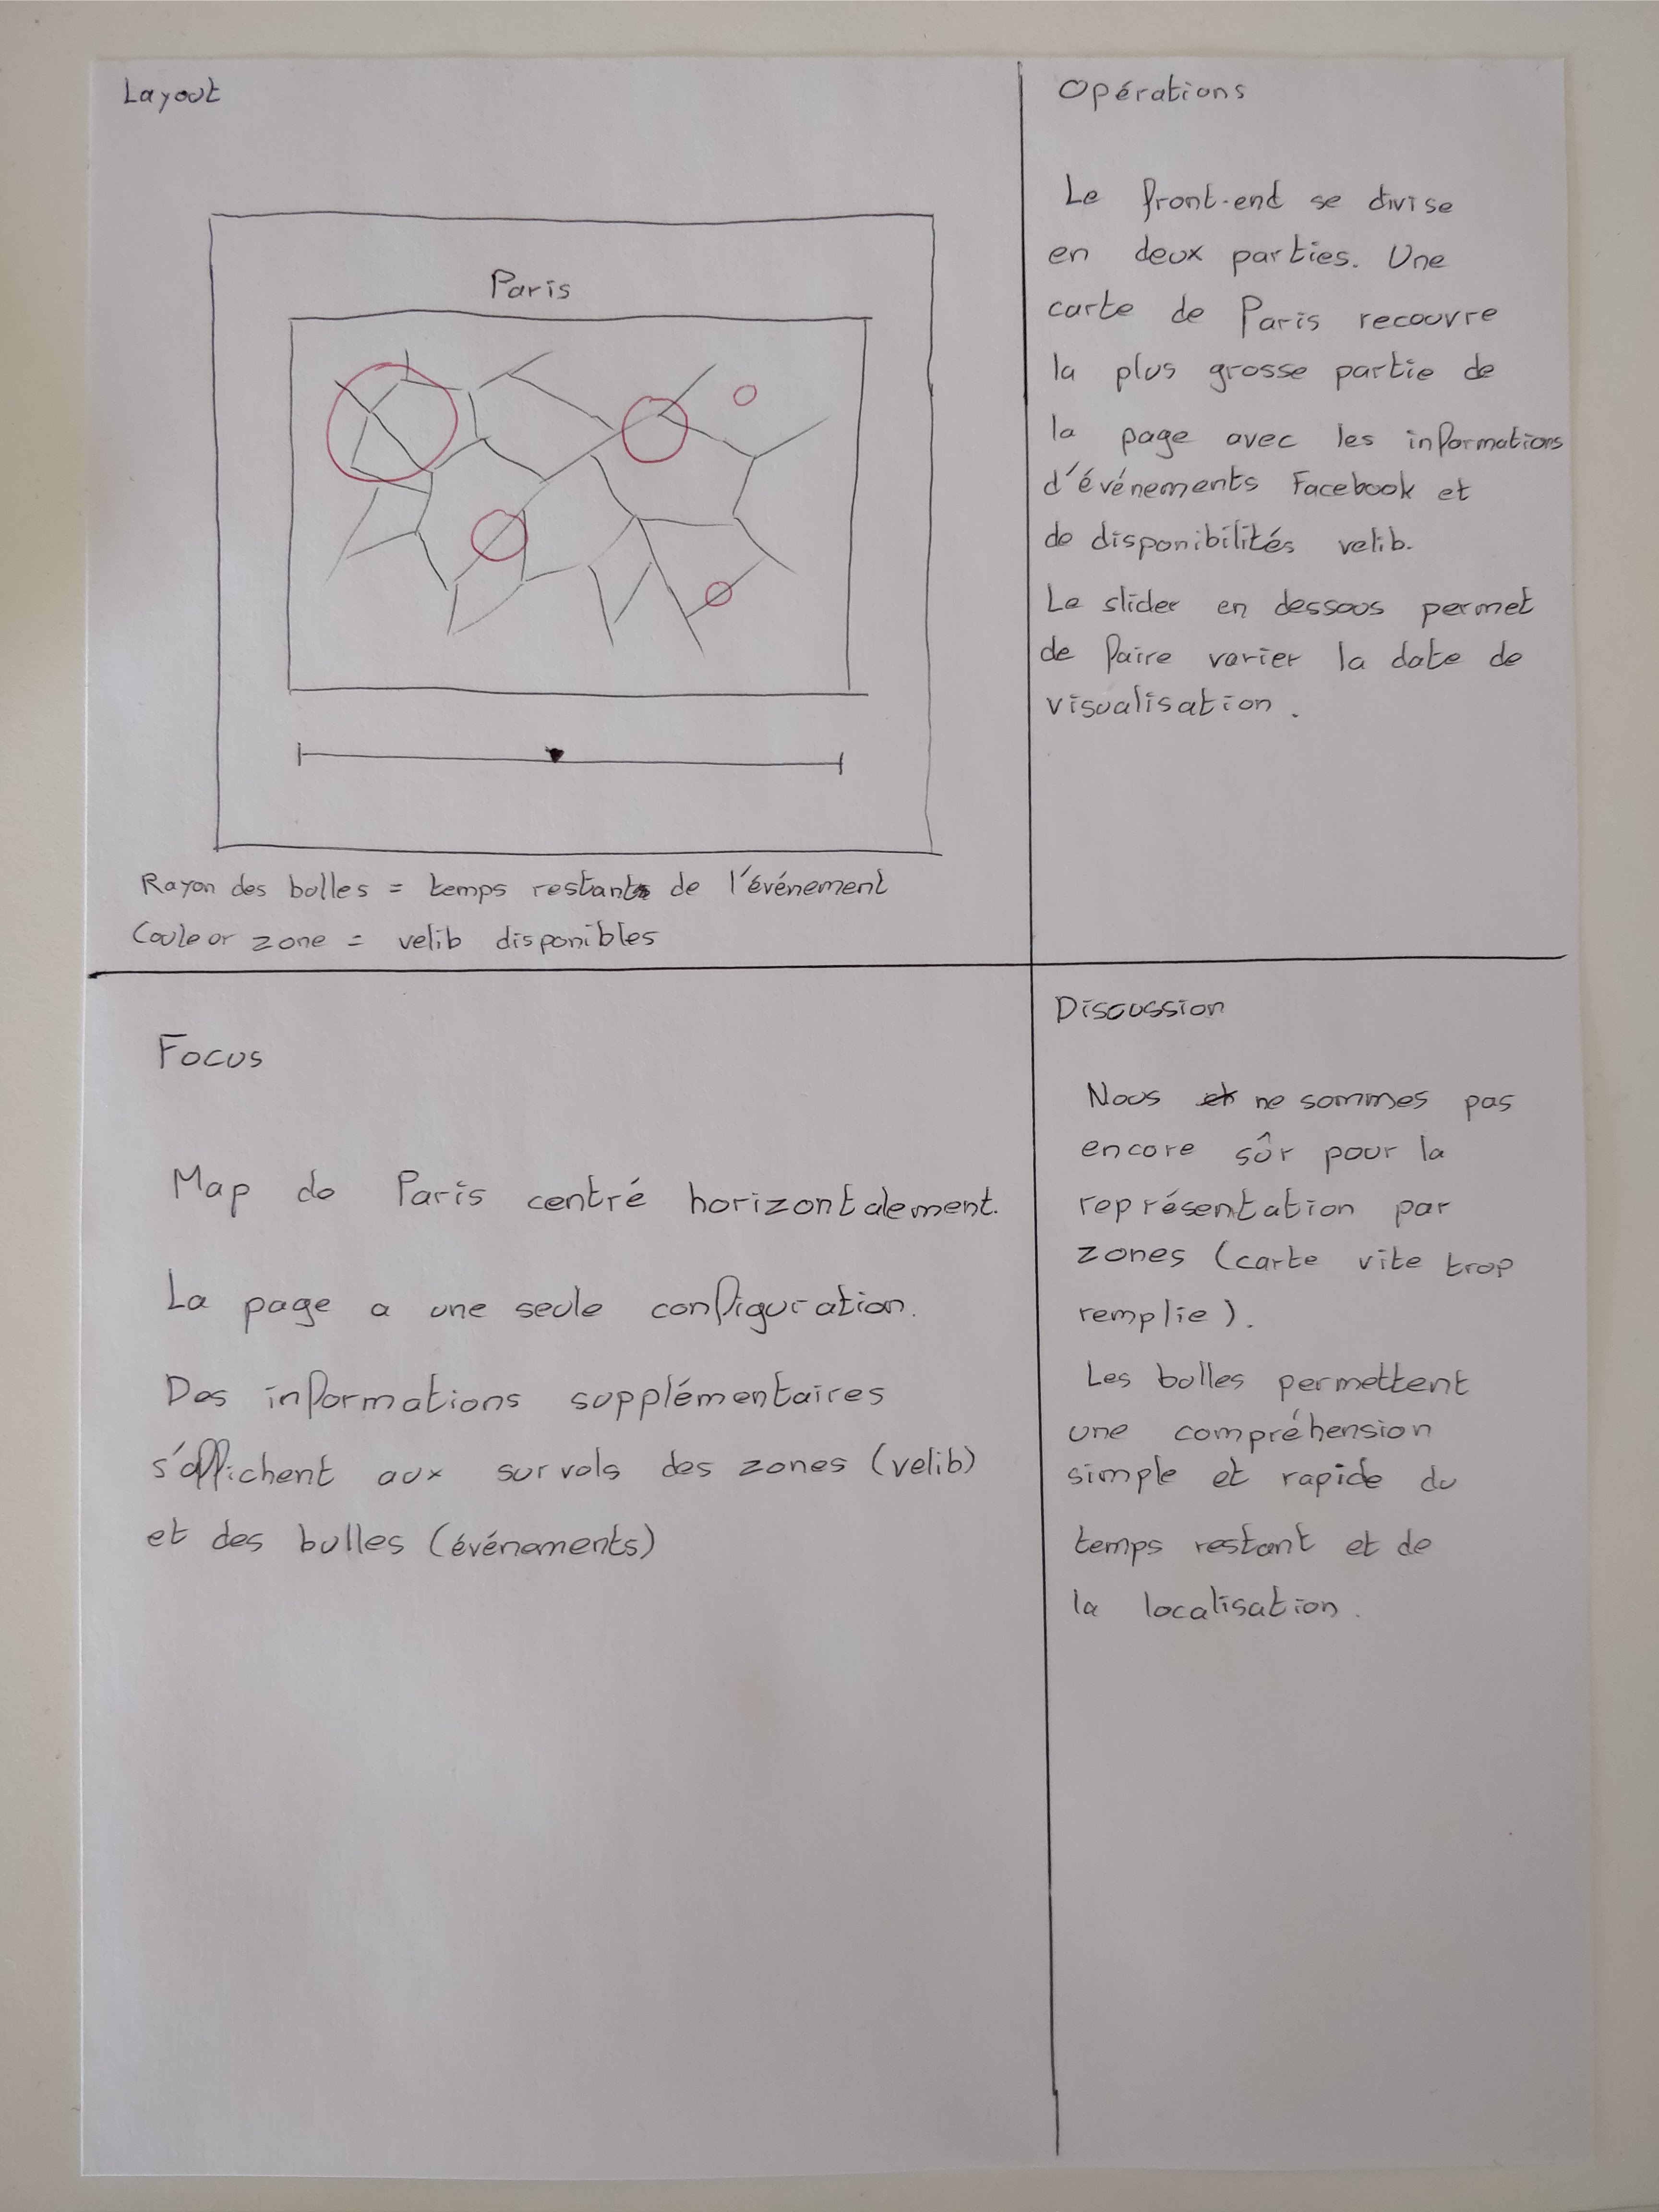 Layout
Paris
Rayon des bulles = temps restants de l'événement
Couleur zone = velib disponibles
Opérations
Le front-end se divise
en deux parties. Une
carte de Paris recouvre
la plus grosse partie de
la page avec les informations
d'événements Facebook et
de disponibilités velib.
Le slider en dessous permet
de faire varier la date de
visualisation.
Focus
Map de Paris centré horizontalement.
La page a une seule configuration.
Des informations supplémentaires
s'affichent aux survols des zones (velib)
et des bulles (événements)
Discussion
Nous ne sommes pas
encore sûr pour la
représentation par
zones (carte vite trop
remplie).
Les bulles permettent
une compréhension
simple et rapide du
temps restant et de
la localisation.